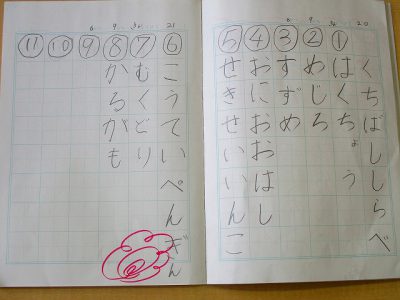 くちばししらべ
①はくちょう
②めじろ
③すずめ
④おにおおはし
⑤せきせいいんこ
⑥こうていぺんぎん
⑦むくどり
⑧かるがも
⑨
⑩
⑪